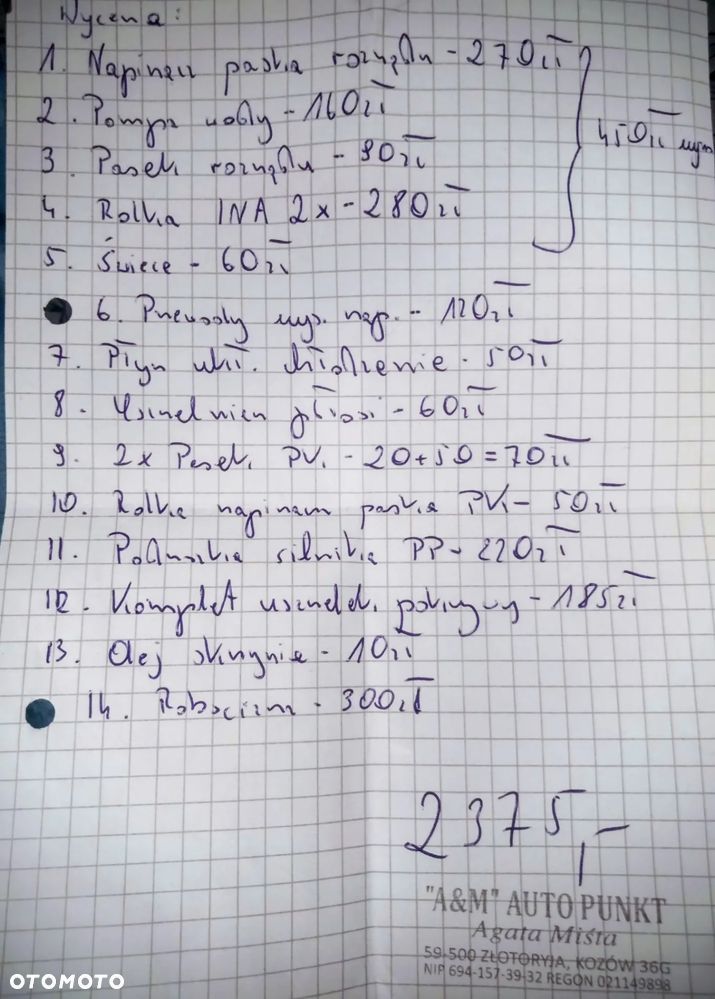 Wycena:
1. Napinacz paska rozrządu - 270zł
450zł wym
2. Pompa wody - 160zł
3. Pasek rozrządu - 90zł
4. Rolka INA 2x - 280zł
5. Świece - 60zł
6. Przewody wys. nap. - 120zł
7. Płyn ukł. chłodzenie - 50zł
8. Uszczelniacz głowi - 60zł
9. 2x Pasek PVi - 20+50=70zł
10. Rolka napinacz paska PVi - 50zł
11. Poduszka silnika PP - 220zł
12. Komplet uszczelek pokrywy - 185zł
13. Olej skrzynie - 10zł
14. Robocizna - 300zł
2375,-
"A&M" AUTO PUNKT
Agata Miśta
59-500 ZŁOTORYJA, KOZÓW 36G
NIP 694-157-39-32 REGON 021149898
OTOMOTO